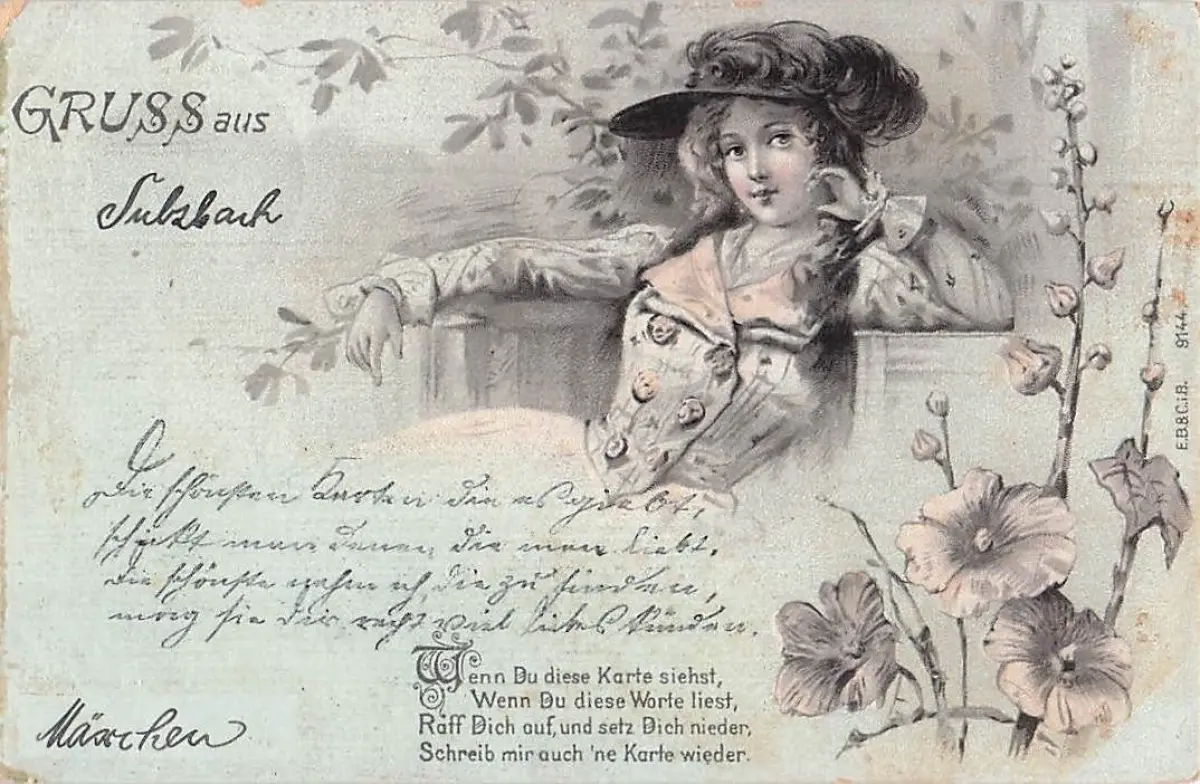 GRUSS aus
Sulzbach
Die schönsten Karten die es giebt,
schickt man denen, die man liebt.
die schönste nahm ich, die zu finden,
mög sie dir recht viel liebes künden.
Wenn Du diese Karte siehst,
Wenn Du diese Worte liest,
Raff Dich auf, und setz Dich nieder,
Schreib mir auch 'ne Karte wieder.
Märchen
E.B.&C.i.B. 9144.